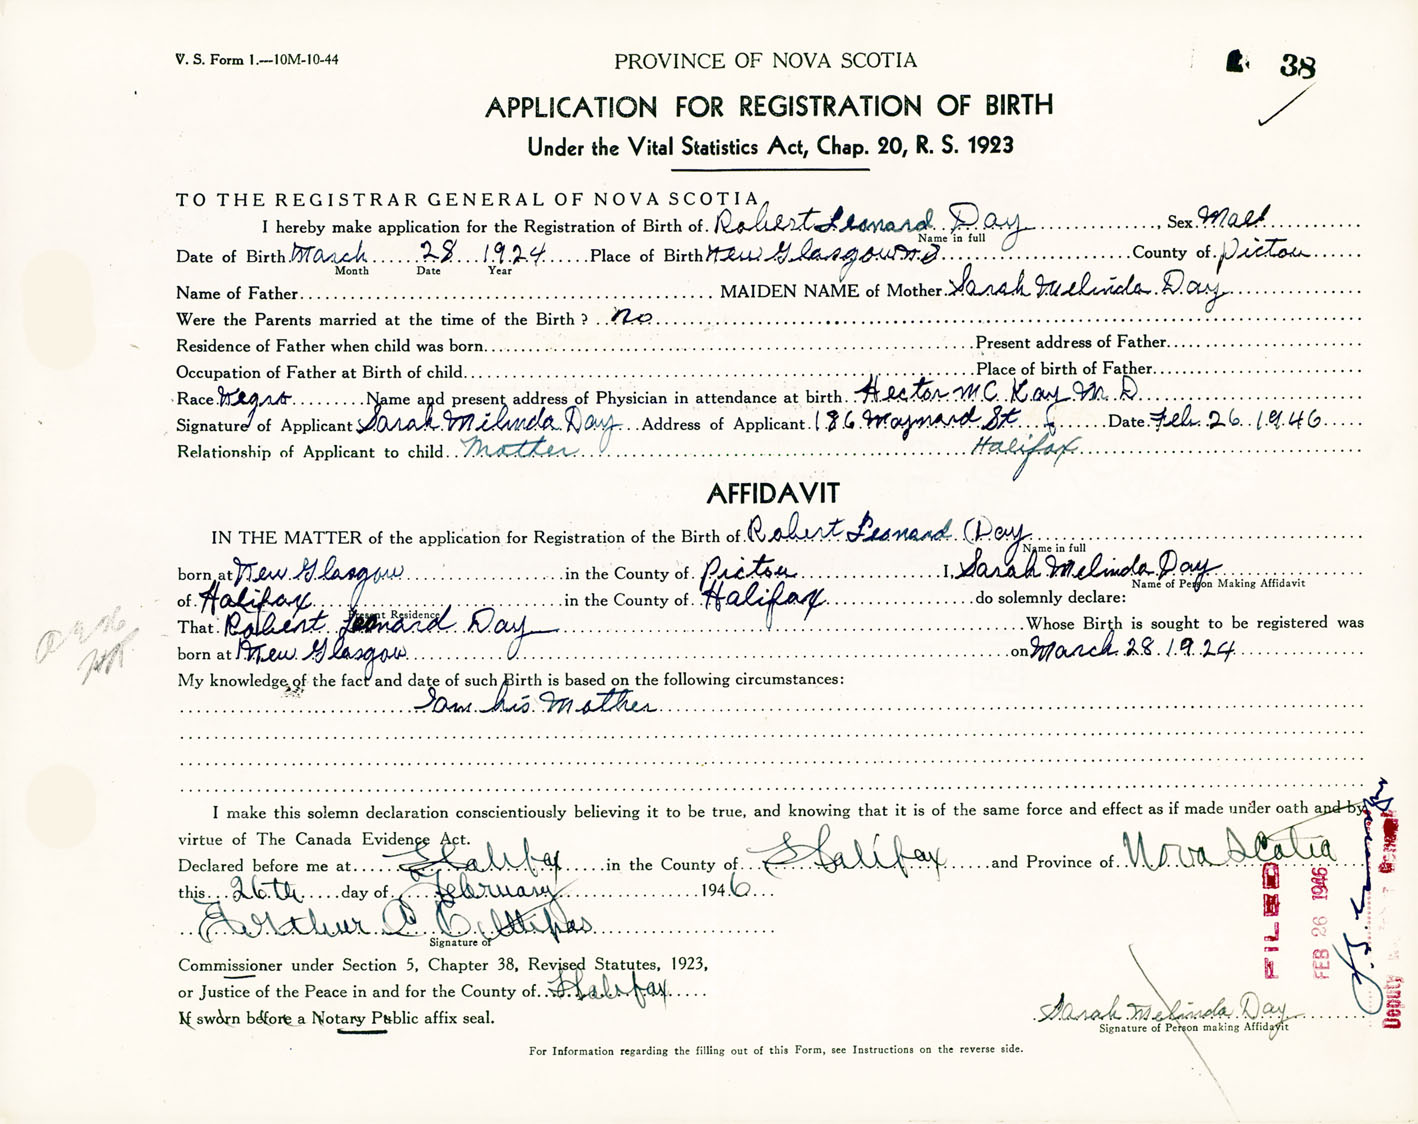 V. S. Form 1.—10M-10-44
PROVINCE OF NOVA SCOTIA
38
APPLICATION FOR REGISTRATION OF BIRTH
Under the Vital Statistics Act, Chap. 20, R. S. 1923
TO THE REGISTRAR GENERAL OF NOVA SCOTIA,
I hereby make application for the Registration of Birth of Robert Leonard Day, Sex Male
Name in full
Date of Birth March 28 1924 Place of Birth New Glasgow N S County of Pictou
Month Date Year
Name of Father MAIDEN NAME of Mother Sarah Melinda Day
Were the Parents married at the time of the Birth? no
Residence of Father when child was born Present address of Father
Occupation of Father at Birth of child Place of birth of Father
Race Negro Name and present address of Physician in attendance at birth Hector McKay M. D
Signature of Applicant Sarah Milinda Day Address of Applicant 186 Maynard St Date Feb. 26 1946
Relationship of Applicant to child Mother Halifax
AFFIDAVIT
IN THE MATTER of the application for Registration of the Birth of Robert Leonard (Day
Name in full
born at New Glasgow in the County of Pictou I, Sarah Melinda Day
Name of Person Making Affidavit
of Halifax in the County of Halifax do solemnly declare:
Present Residence
That Robert Leonard Day Whose Birth is sought to be registered was
born at New Glasgow on March 28 1924
My knowledge of the fact and date of such Birth is based on the following circumstances:
I am his Mother
I make this solemn declaration conscientiously believing it to be true, and knowing that it is of the same force and effect as if made under oath and by
virtue of The Canada Evidence Act.
Declared before me at Halifax in the County of Halifax and Province of Nova Scotia
this 26th day of February 1946
Arthur
Signature of
Commissioner under Section 5, Chapter 38, Revised Statutes, 1923,
or Justice of the Peace in and for the County of Halifax
If sworn before a Notary Public affix seal.
Sarah Melinda Day
Signature of Person making Affidavit
For Information regarding the filling out of this Form, see Instructions on the reverse side.
FILED
FEB 26 1946
Deputy General